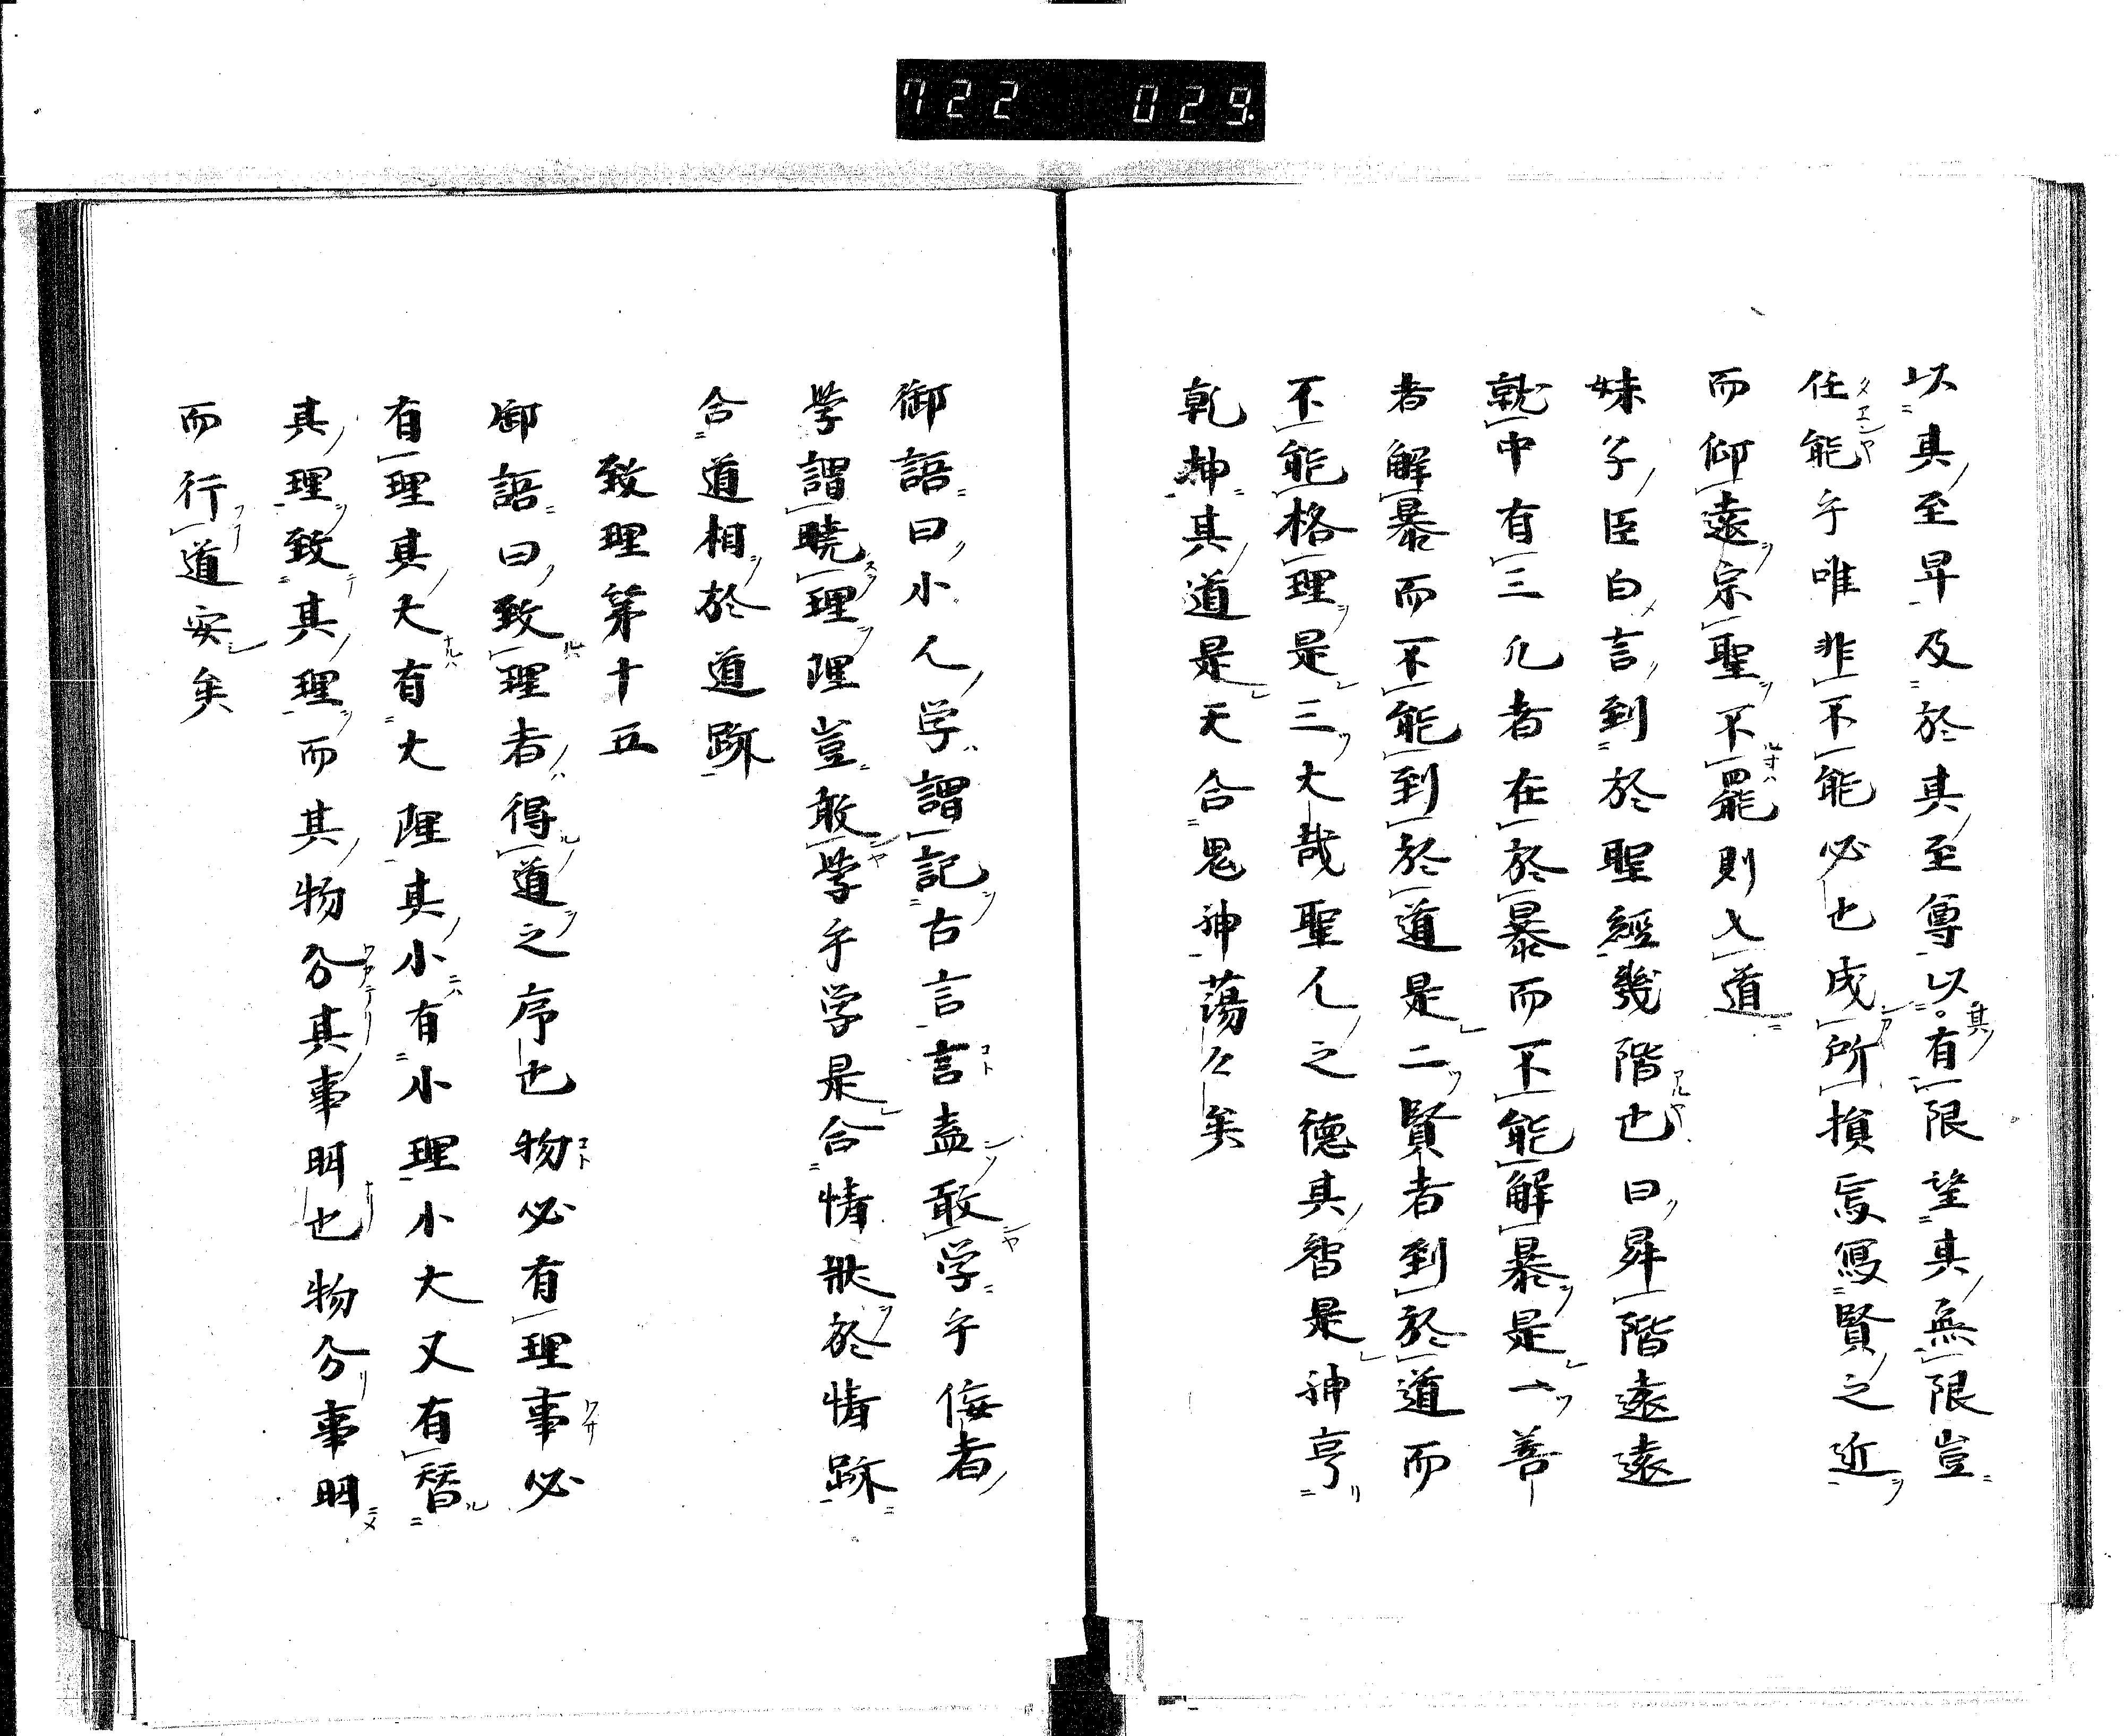 722 029
以其至早及於其至尊以有限望其無限豈
任能乎唯非不能必也成所損忘寫賢之近
而仰遠宗聖不罷則入道
妹子臣白言到於聖經幾階也曰昇階遠遠
就中有三凡者在於暴而不能解暴是一善
者解暴而不能到於道是二賢者到於道而
不能格理是三大哉聖人之德其智是神亨
乾坤其道是天合鬼神蕩々矣
御語曰小人学謂記古言言盡敢学乎侫者
學謂曉理理豈敢學乎学是合情狀於情跡
合道相於道跡
致理第十五
御語曰致理者得道之序也物必有理事必
有理其大有大理其小有小理小大又有替
其理致其理而其物分其事明也物分事明
而行道安矣